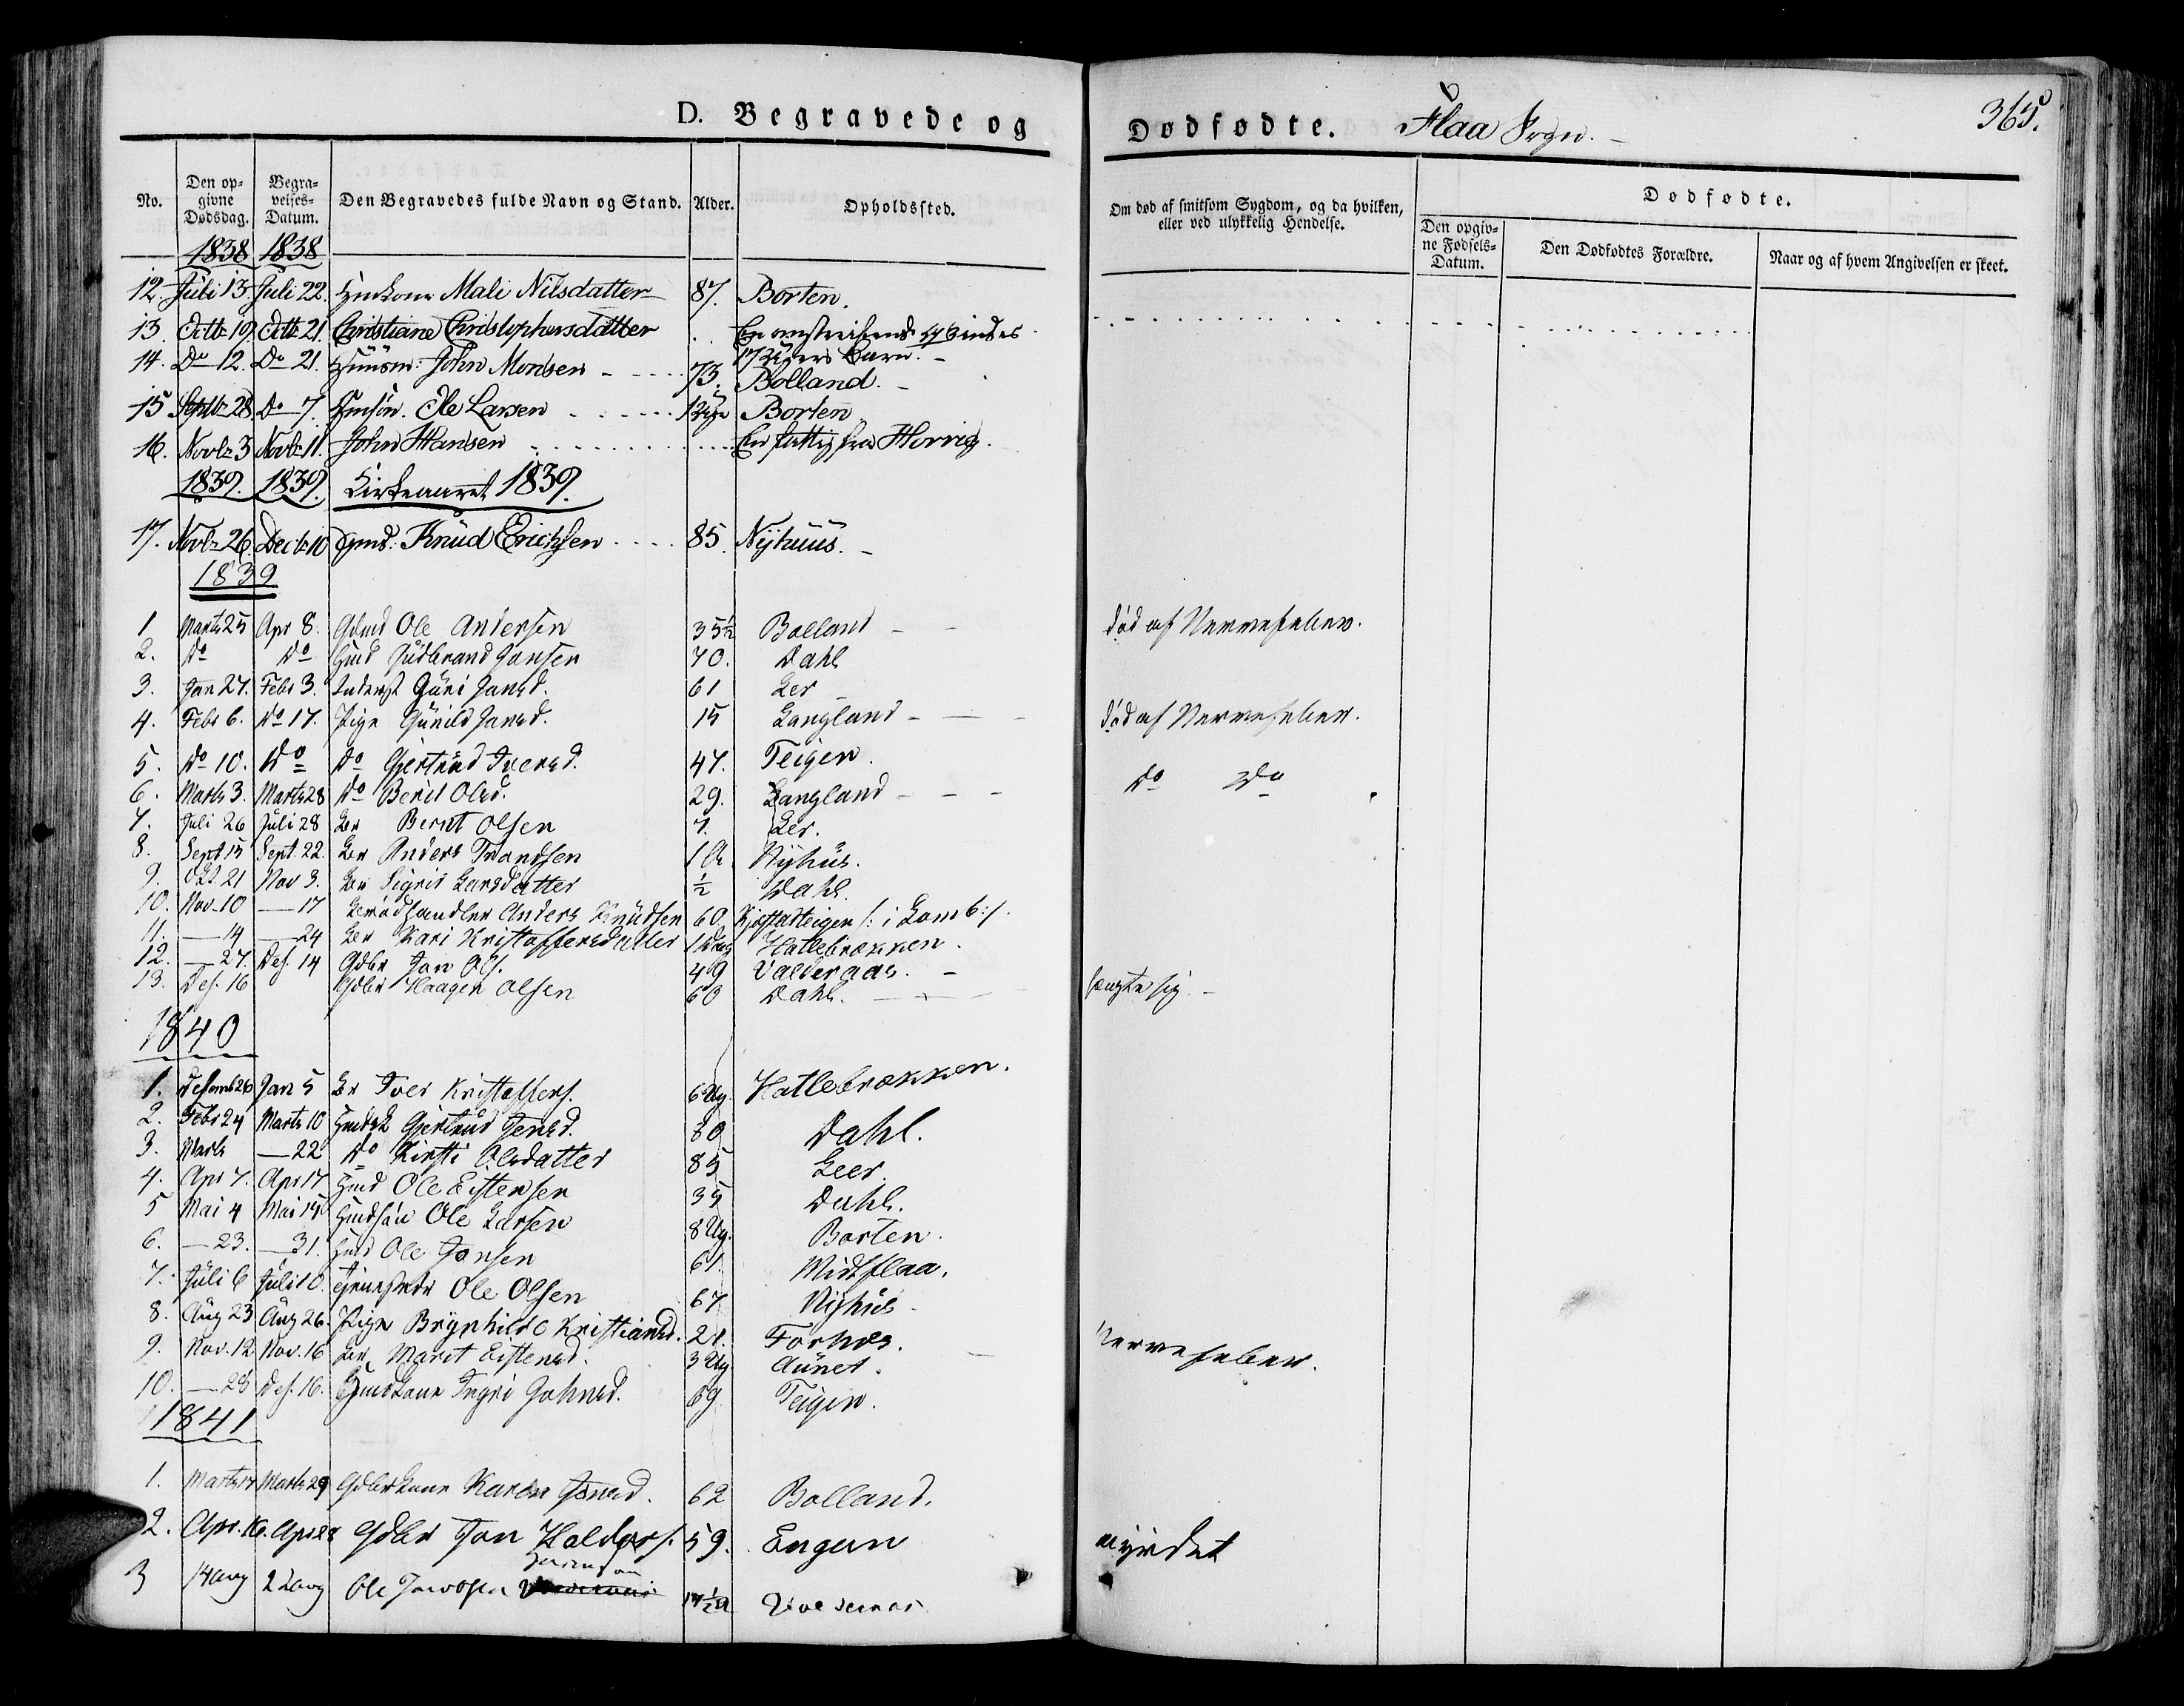 D. Begravede og Dødfødte. Flaa Sogn.
365.
No. Den opgivne Dødsdag. Begravelses-Datum. Den Begravedes fulde Navn og Stand. Alder. Opholdssted. Om død af smitsom Sygdom, og da hvilken, eller ved ulykkelig Hendelse. Dødfødte.
Den opgivne Fødsels-Datum. Den Dødfødtes Forældre. Naar og af hvem Angivelsen er skeet.
1838 1838
12. Juli 13. Juli 22. Mali Nilsdatter 87. Borten.
13. Octb 19. Octb 21. Christiane Christophersdatter En omstreifende Qvindes
14. Do 12. Do 21. Huusm: John Monsen 73. Bolland. 17 Ugers Barn.
15 Septb 28 Do 7. Ole Larsen Borten
16. Novb 3 Novb 11. John Hansen En fattig fra Horrig.
1839. 1839. Kirkeaaret 1839.
17. Novb 26. Decb 10 Gmd: Knud Erichsen 85. Nyhuus.
1839
1 Marts 25 Apr 8. Gdmd Ole Andersen 35½ Bolland død af Nervefeber.
2. Do Do Hmd Gudbrand Jonsen 70. Dahl
3. Jan 27. Febr 3. Inderst Guri Jonsd. 61 Ler
4. Febr 6. Do 17. Pige Gunild Jonsd. 15 Langland død af Nervefeber.
5. Do 10. Do Do Gjertrud Iversd. 47. Teigen.
6. Marts 3. Marts 28 Do Berit Olsd. 29. Langland Do Do
7. Juli 26 Juli 28 Bn Bernt Olsen 7. Ler.
8. Sept 15 Sept. 22. Bn Anders Trondsen Nyhus.
9. Okt 21 Nov 3. Bn Sigrid Larsdatter ½ Dahl
10. Nov 10 — 17 Anders Knudsen 60 /: i Lomb :/.
11. — 14 — 24 Bn Kari Kristoffersdatter 1 Dag Hatlebrækken.
12. — 27. Des. 14 Gdbr Jon Ols. 49 Valderaas.
13. Des. 16 Gdbr Haagen Olsen 60 Dahl. hængte sig.
1840
1. Desemb 26 Jan 5 Bn Iver Kristoffers. 6 Ug. Hatlebrækken.
2. Febr 24 Marts 10 Gjertrud Jensd. 80 Dahl.
3. Marts — 22 Do Kirsti Olsdatter 85 Leer
4. Apr 7. Apr 17 Hmd Ole Eistensen 35 Dahl.
5 Mai 4 Mai 15 Hmdsøn Ole Larsen 8 Ug. Borten.
6. — 23. — 31. Hmd Ole Jonsen 61. Midtflaa.
7. Juli 6 Juli 10. Ole Olsen 67 Nyhus
8. Aug 23 Aug 26. Pige Brynhild Kristiansd. 21. Fornes. Nervefeber.
9. Nov. 12 Nov. 16 Bn Marit Eistensd. 3 Ug Aunet.
10. — 28 Des. 16. Hmdkone Ingri Johnsd. 69. Teigen.
1841
1. Marts 17 Marts 29 Gdbrkone Karen Jonsd. 62 Bolland.
2. Apr. 16. Apr 28 Gdbr Jon Haldors. 59. Engen myrdet
3 14 aug 22 aug Ole